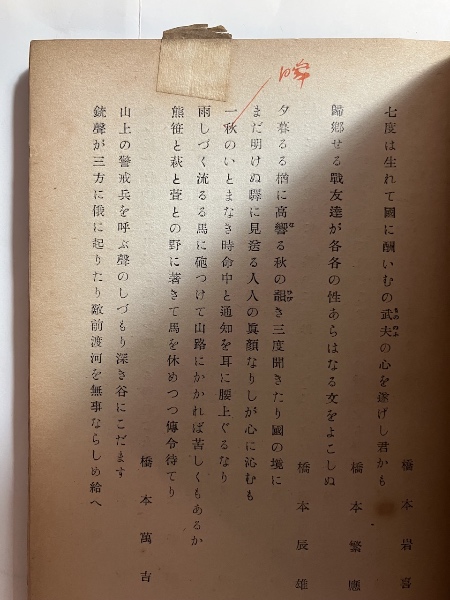 橋本岩喜
七度は生れて國に酬いむの武夫の心を遂げし君かも
橋本繁應
歸郷せる戰友達が各各の性あらはなる文をよこしぬ
橋本辰雄
夕暮るる樹に高響る秋の韻き三度聞きたり國の境に
まだ明けぬ驛に見送る人人の眞顔なりしが心に沁むも
一秋のいとまなき時命中と通知を耳に腰上ぐるなり
瞬
雨しづく流るる馬に砲つけて山路にかかれば苦しくもあるか
熊笹と萩と萱との野に著きて馬を休めつつ傳令待てり
橋本萬吉
山上の警戒兵を呼ぶ聲のしづもり深き谷にこだます
銃聲が三方に俄に起りたり敵前渡河を無事ならしめ給へ